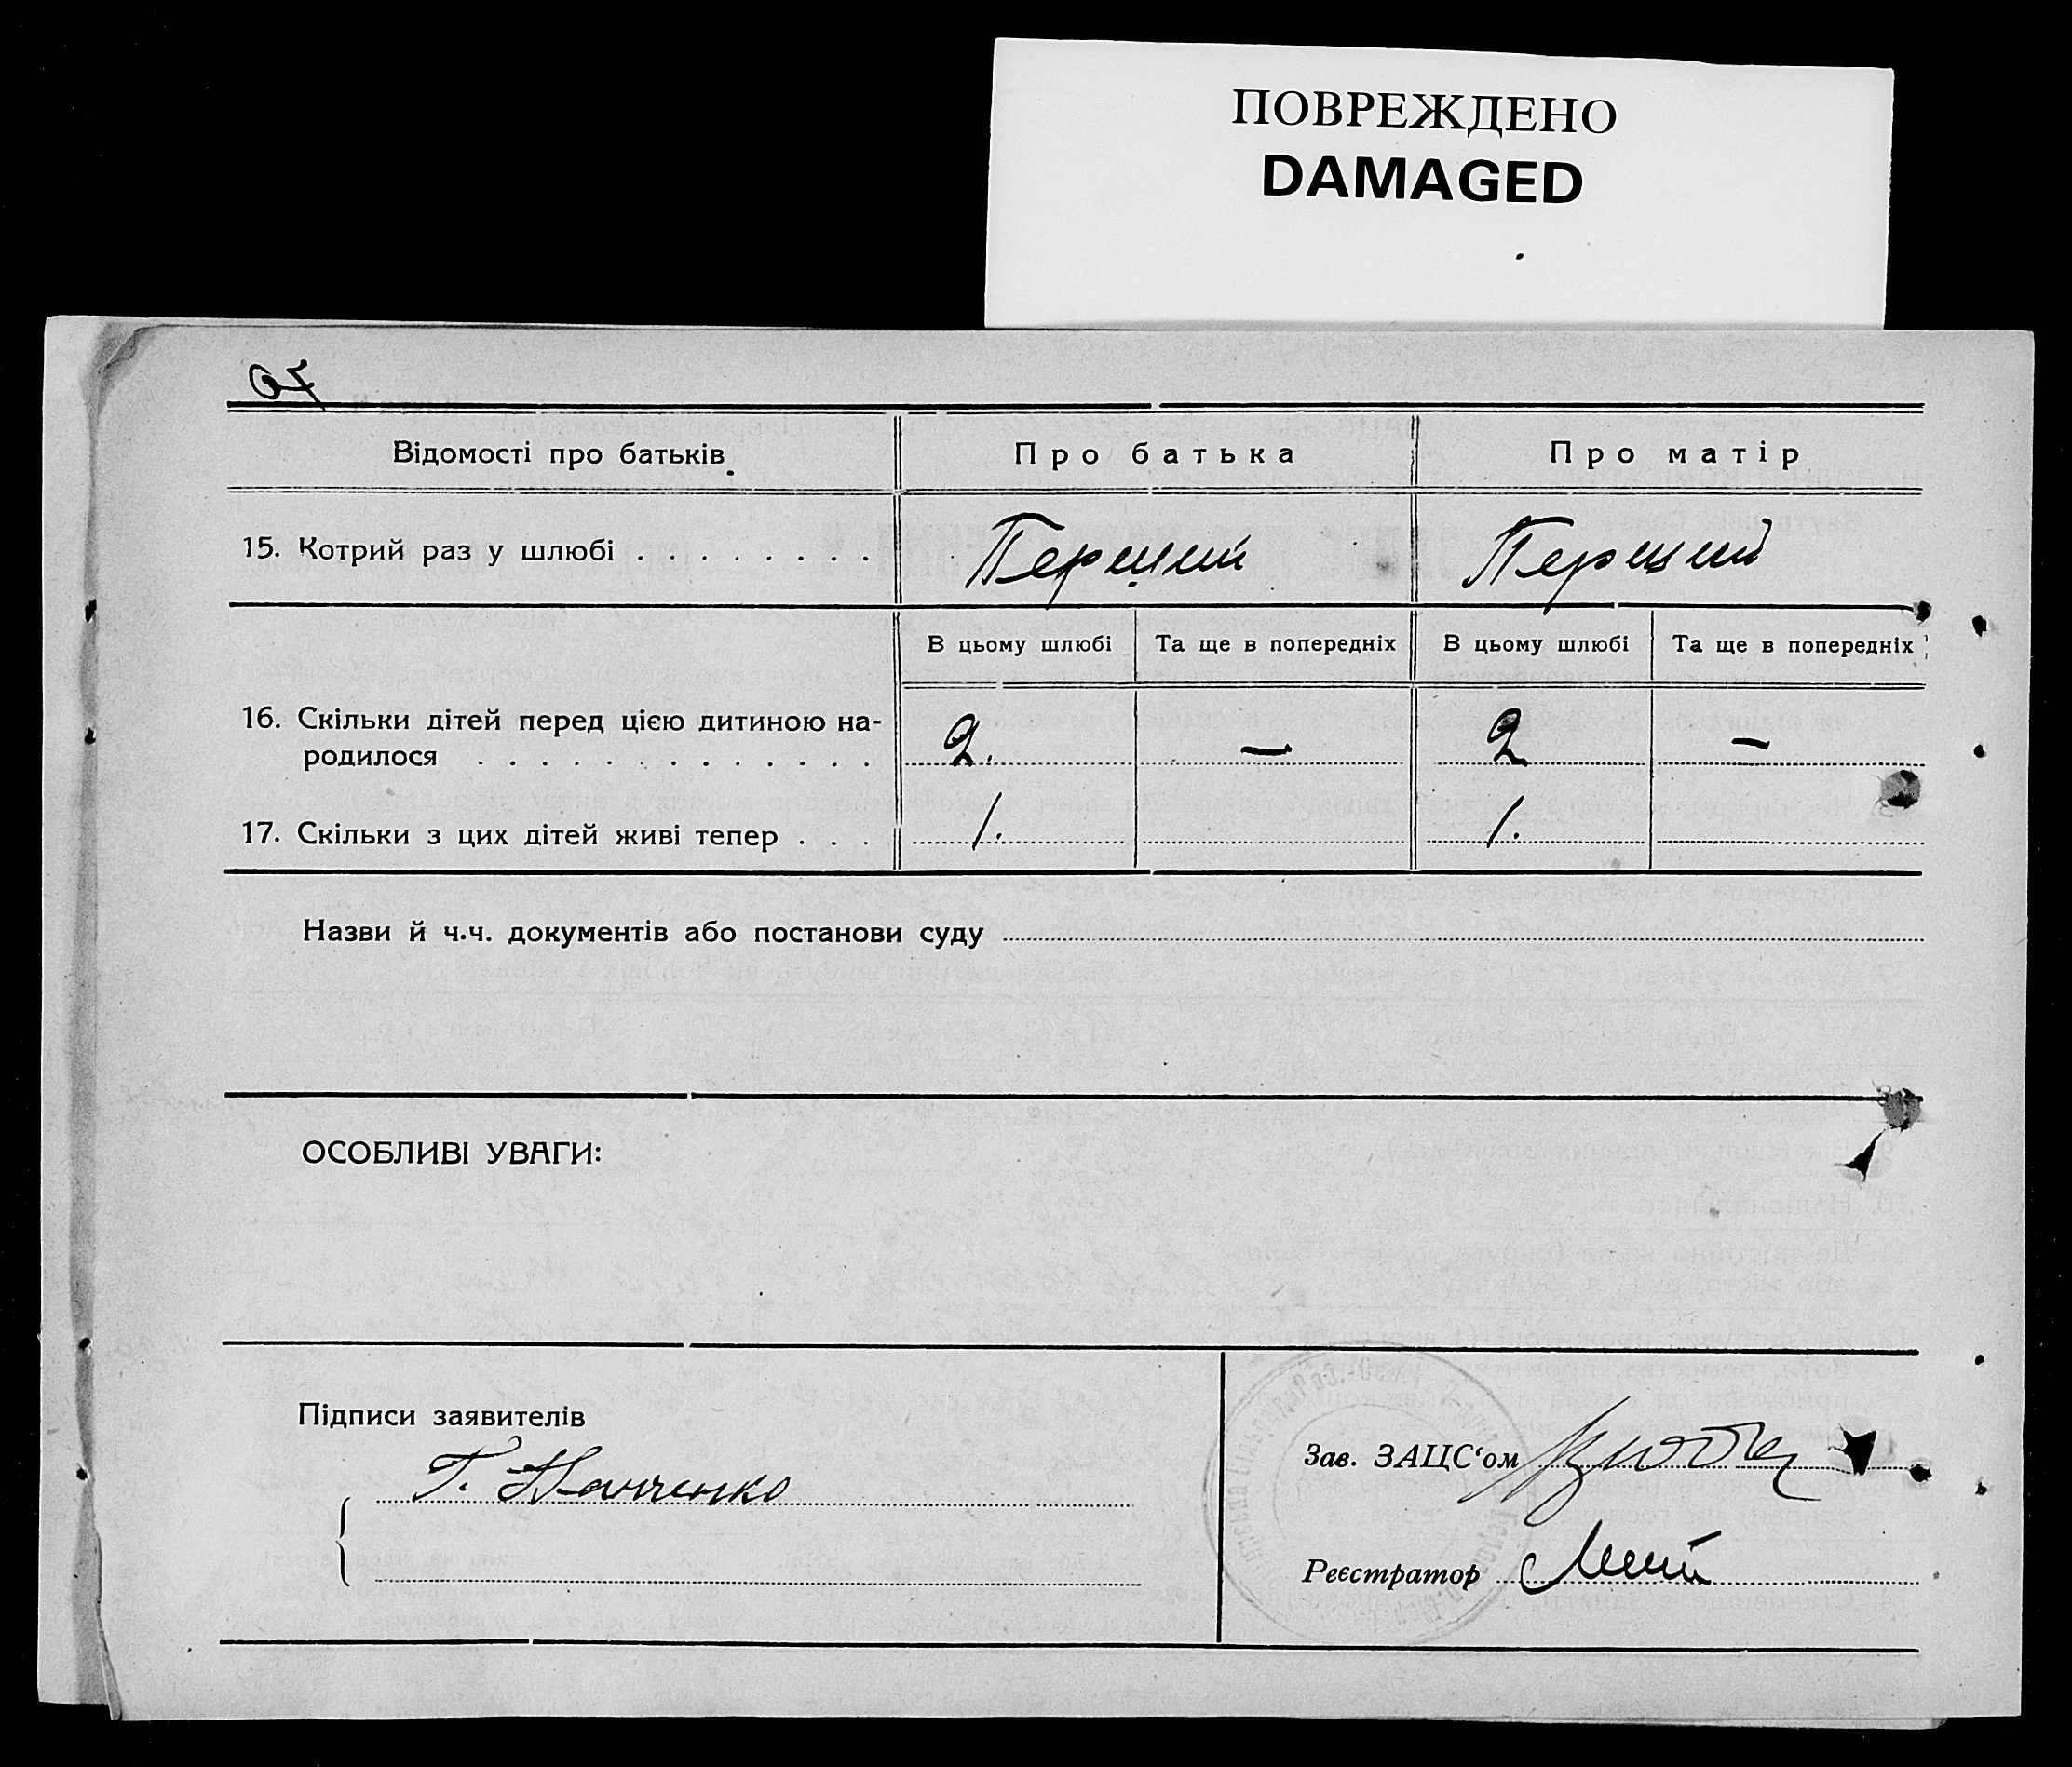 ПОВРЕЖДЕНО
DAMAGED
Відомості про батьків
Про батька
Про матір
15. Котрий раз у шлюбі . . . . . . . .
Перший
Перший
В цьому шлюбі
Та ще в попередніх
В цьому шлюбі
Та ще в попередніх
16. Скільки дітей перед цією дитиною на-
родилося . . . . . . . . . . . . .
2.
—
2
—
17. Скільки з цих дітей живі тепер . . .
1.
1.
Назви й ч.ч. документів або постанови суду
ОСОБЛИВІ УВАГИ:
Підписи заявителів
Г.
Зав. ЗАЦС‘ом
Реєстратор